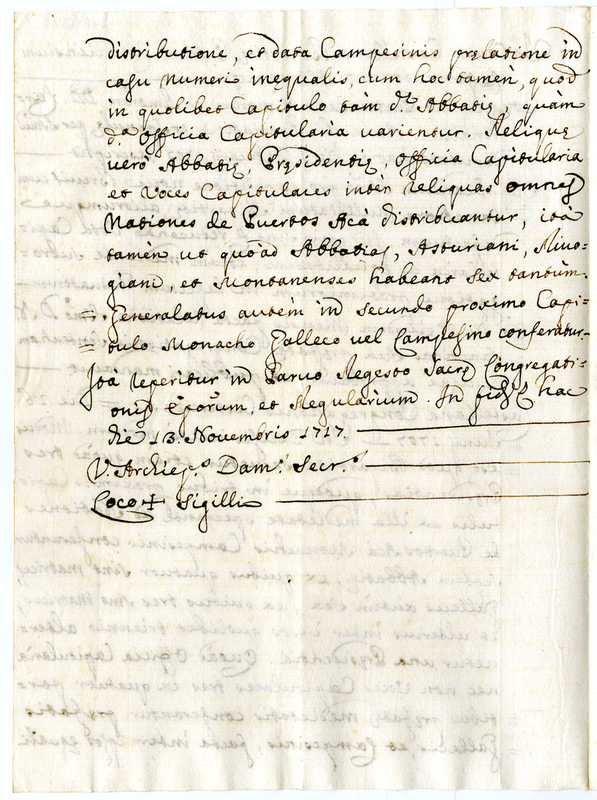 distributione, et data Campesinis pręlatione in
casu numeri inęqualis, cum hoc tamèn, quod
in quolibet Capitulo tàm d.ᵃ Abbatię, quàm
d.ᵃ Officia Capitularia varientur. Reliquę
verò Abbatię, Pręsidentię, Officia Capitularia
et Voces Capitulares intèr reliquas omnes
Nationes de Puertos Acà distribuantur, ità
tamèn ut quòad Abbatias, Asturiani, Rivo=
giani, et Montanenses habeant sex tantùm.
= Generalatus autèm in secundo proximo Capi=
= tulo Monacho Galleco vel Campesino conferatur.
Ità reperitur in Parvo Regesto Sacrę Congregati=
onis Epõrum, et Regularium. In fidem hac
die 13. Novembris 1717.
V. Archiepˢ. Dam. Secr.ˢ
Loco ✝ Sigilli